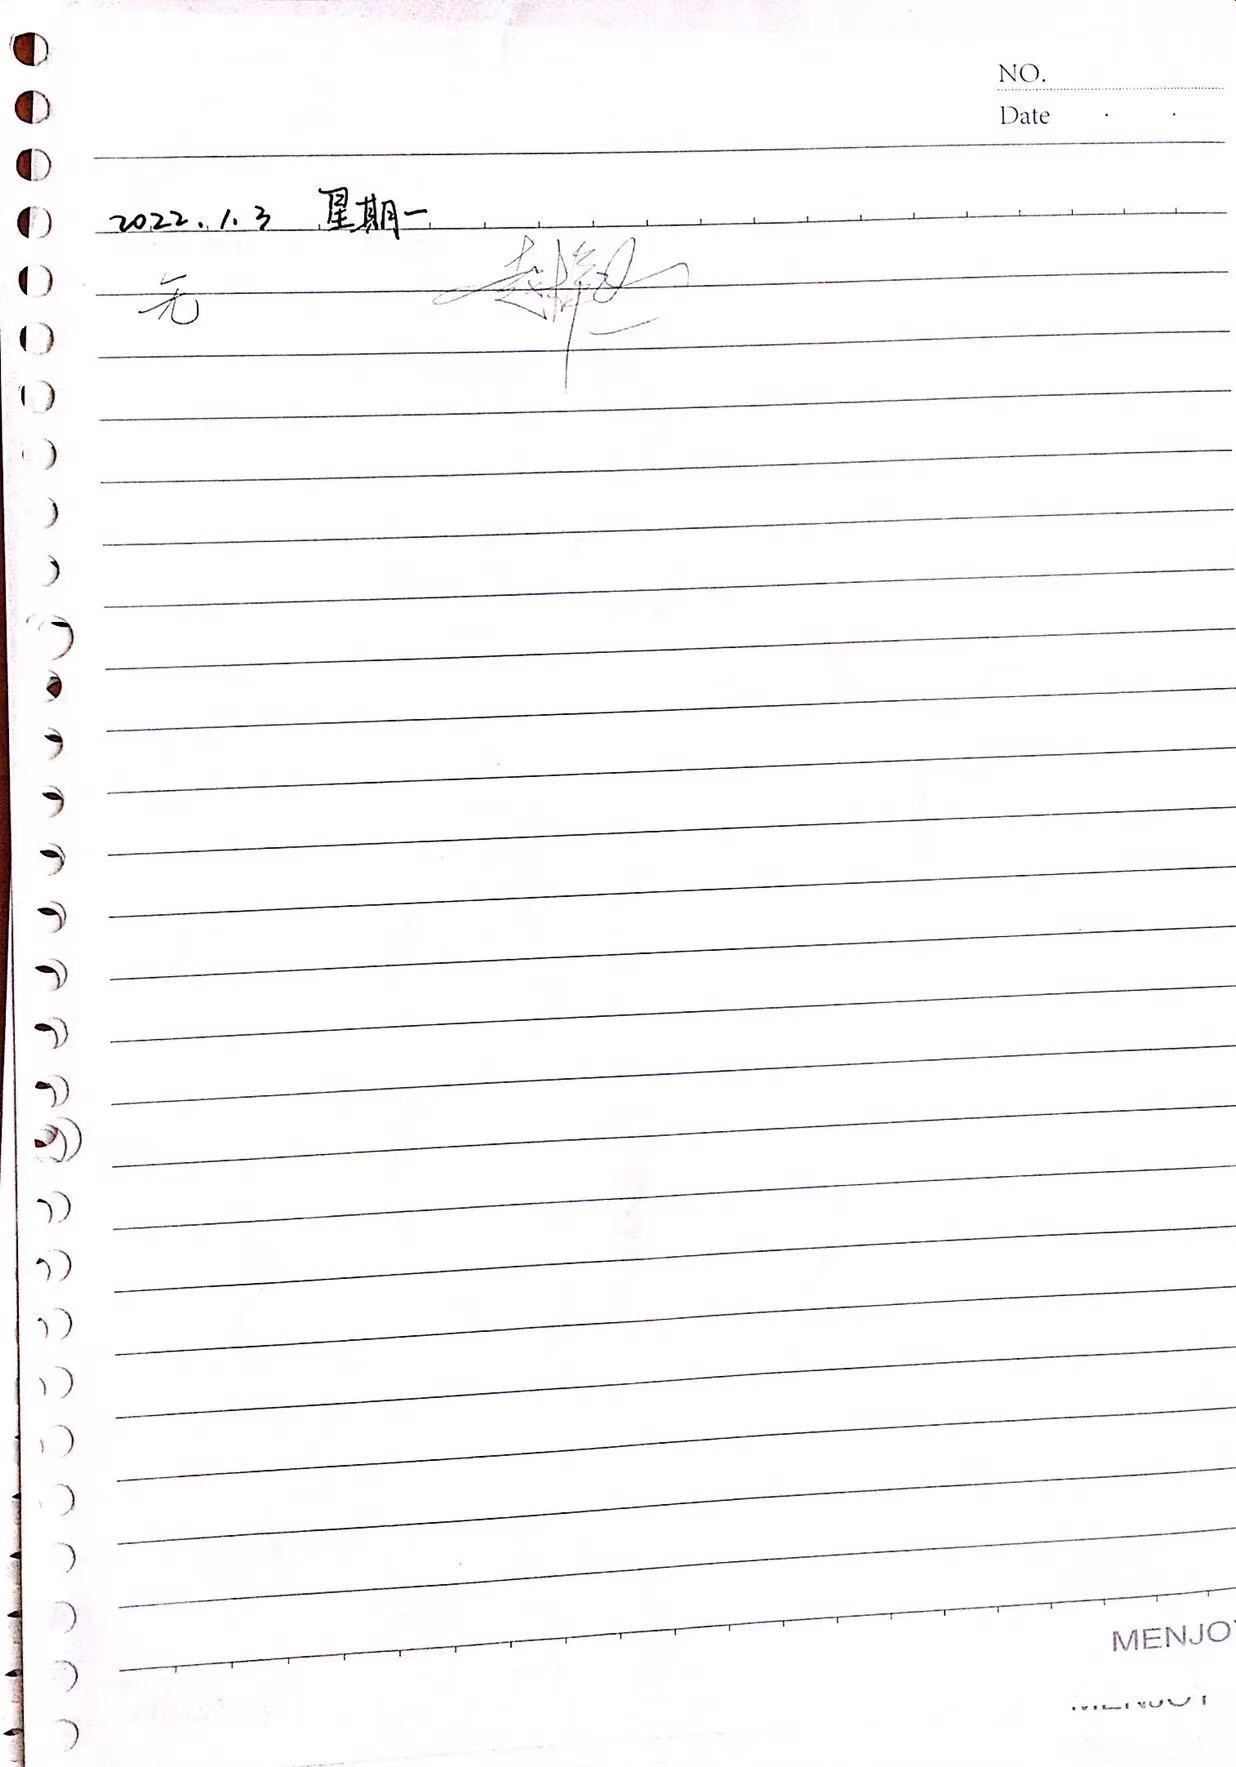 NO.
Date . .
2022.1.3 星期一
无 赵
MENJO
MENJOY